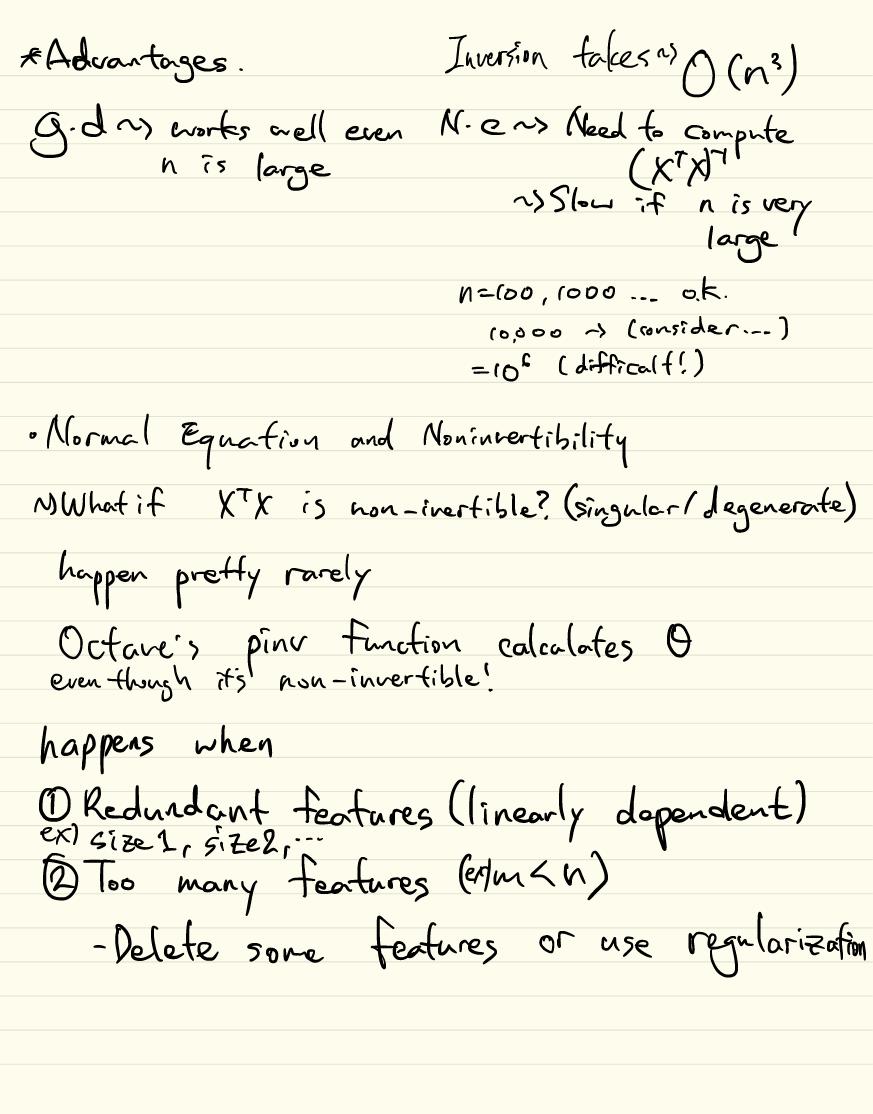 *Advantages.
Inversion takes ~> O(n³)
g.d ~> works well even
n is large
N.e ~> Need to compute
(XᵀX)⁻¹
~> Slow if n is very
large
n=100, 1000 ... o.k.
10,000 → (consider...)
=10⁶ (difficalt!)
• Normal Equation and Noninvertibility
~> What if XᵀX is non-invertible? (singular/degenerate)
happen pretty rarely
Octave's pinv function calcalates θ
even though it's non-invertible!
happens when
① Redundant features (linearly dependent)
ex) size1, size2, ...
② Too many features (ex) m<n)
-Delete some features or use regularization